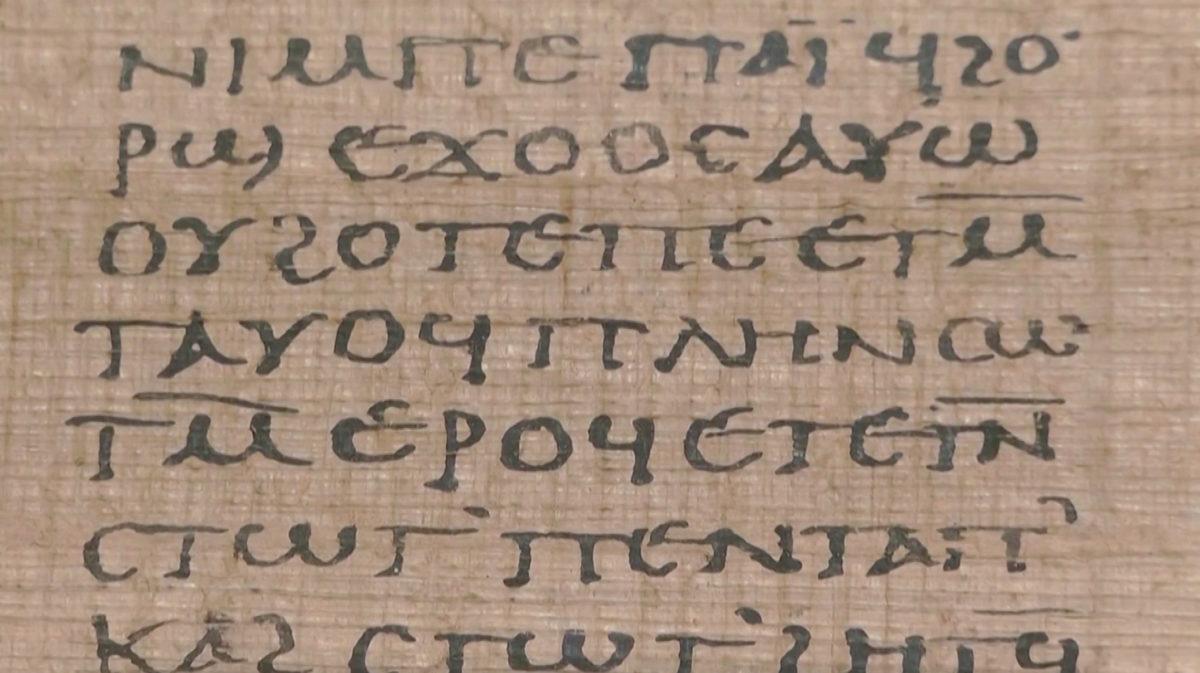 ⲚⲒⲘⲠⲈⲠⲀⲒ̈ϤϨⲞ
ⲢϢⲈⲬⲞⲞⲤⲀⲨⲰ
ⲞⲨϨⲞⲦⲈⲠⲈⲈⲦⲘ̅
ⲦⲀⲨⲞϤⲠⲖⲎⲚⲤⲰ
ⲦⲘ̅ⲈⲢⲞϤⲈⲦⲈⲦⲚ̅
ⲤⲰⲦⲠ̅ⲈⲚⲦⲀⲠ
ⲔⲀϨⲤⲰⲦϨⲎⲦϤ̅